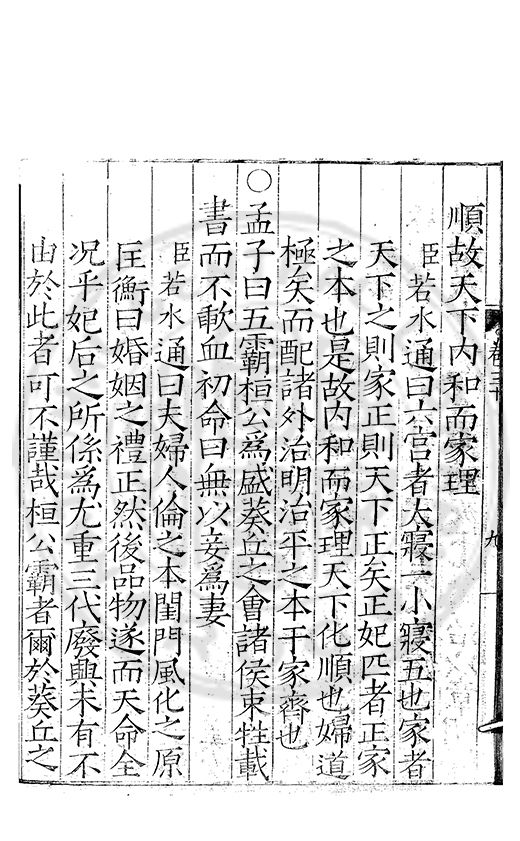 順故天下内和而家理
臣若水通曰六宫者大寢一小寢五也家者
天下之則家正則天下正矣正妃匹者正家
之本也是故内和而家理天下化順也婦道
極矣而配諸外治明治平之本于家齊也
○孟子曰五霸桓公爲盛葵丘之會諸侯束牲載
書而不歃血初命曰無以妾爲妻
臣若水通曰夫婦人倫之本閨門風化之原
匡衡曰婚姻之禮正然後品物遂而天命全
况乎妃后之所係爲尤重三代廢興未有不
由於此者可不謹哉桓公霸者爾於葵丘之
卷三十
九